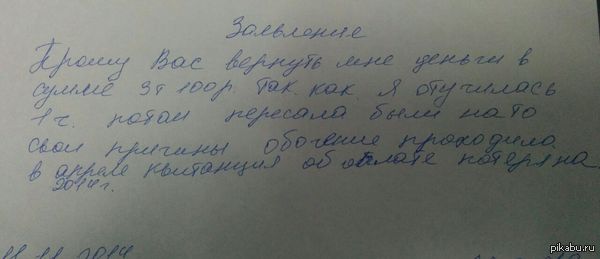 Заявление
Прошу Вас вернуть мне деньги в
сумме 3т 100р. Так. как. я отучилась
1 ч. потом пересала были на то
свои причины обочение проходило.
в апреле квитанция об оплате потеряна.
2014г.
11.11.2014
pikabu.ru